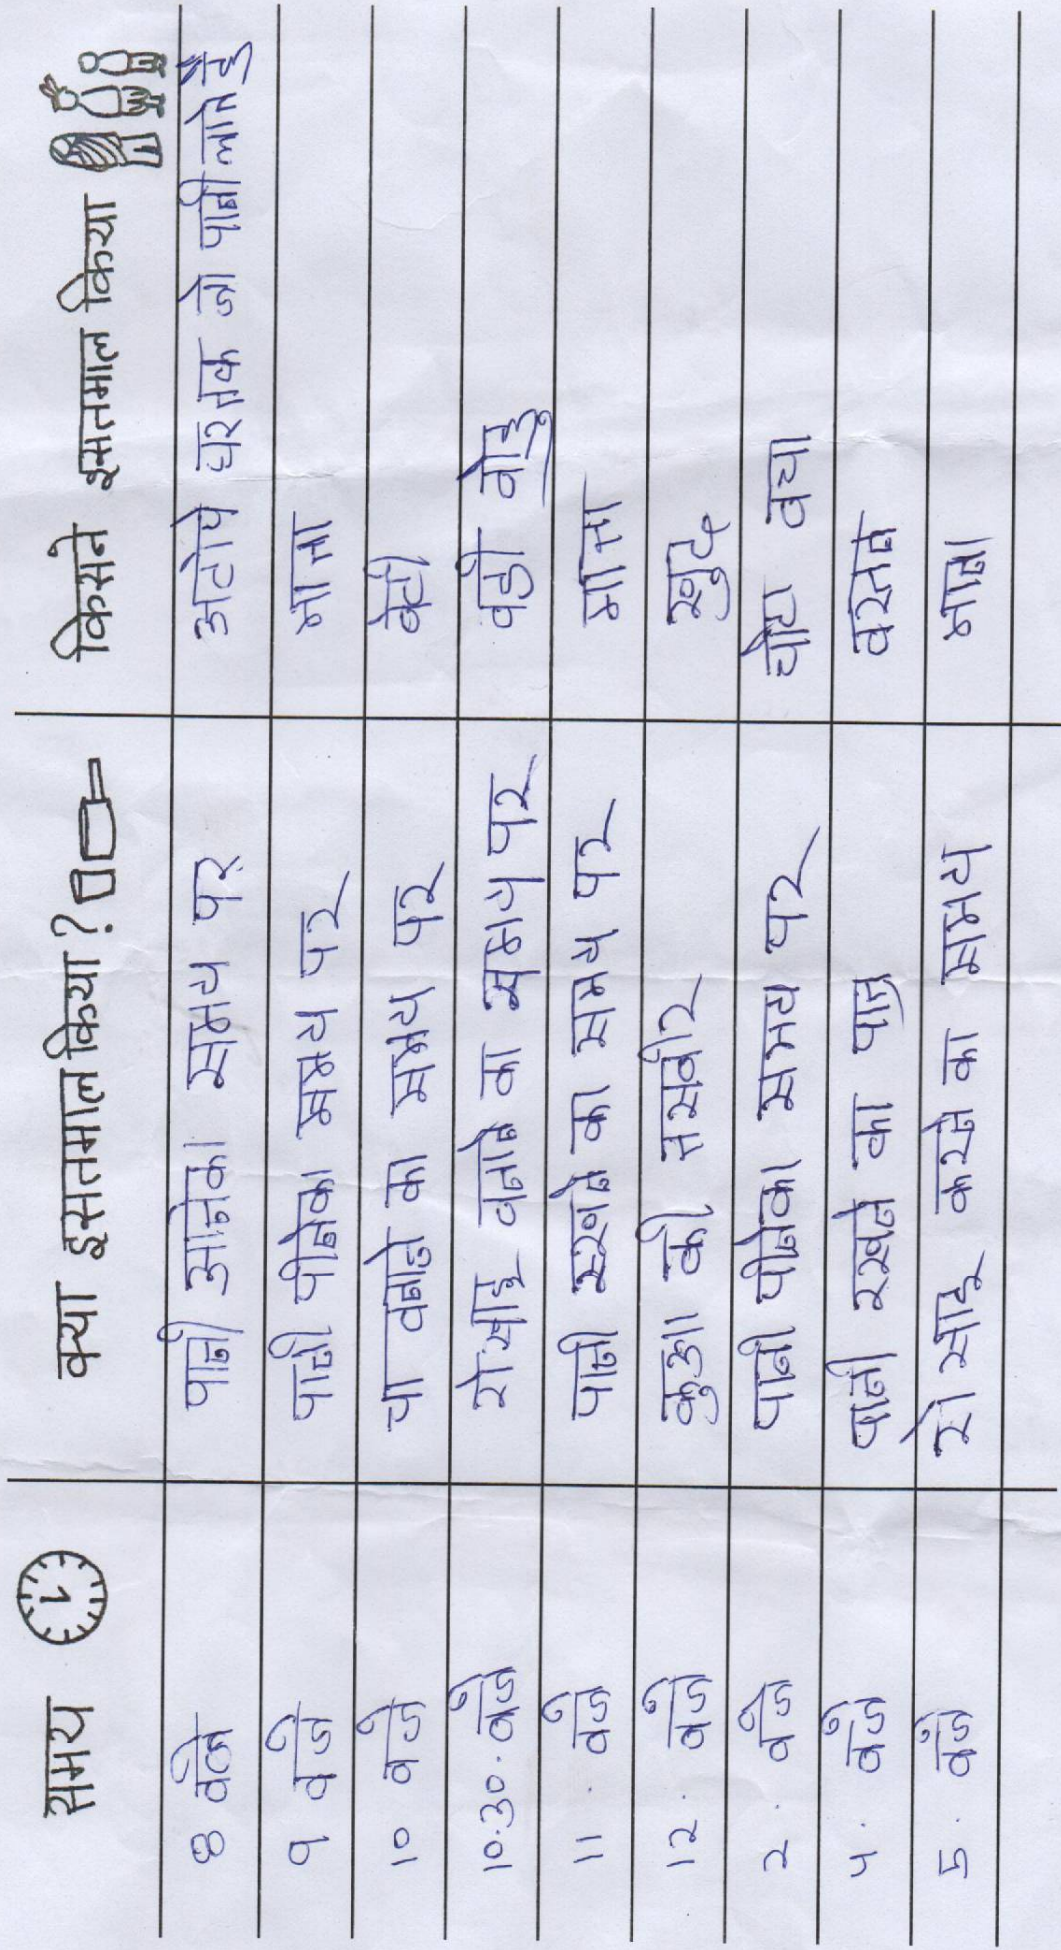 समय क्या इसतमाल किया? किसने इसतमाल किया
8 बजे पानी आनेका समय पर अटोपे घरतक जो पानी लाते है
9 वजे पानी पीनेका समय पर माता
10 वजे चा वनाने का समय पर बेटी
10.30. वजे रोसाइ वनाने का समय पर वडी वोहु
11. वजे पानी रखने का समय पर माता
12. वजे कुआ की तसवीर खुद
2. वजे पानी पीनेका समय पर
4. वजे पानी रखने का पात्र
5. वजे रोसाइ करने का समय माता